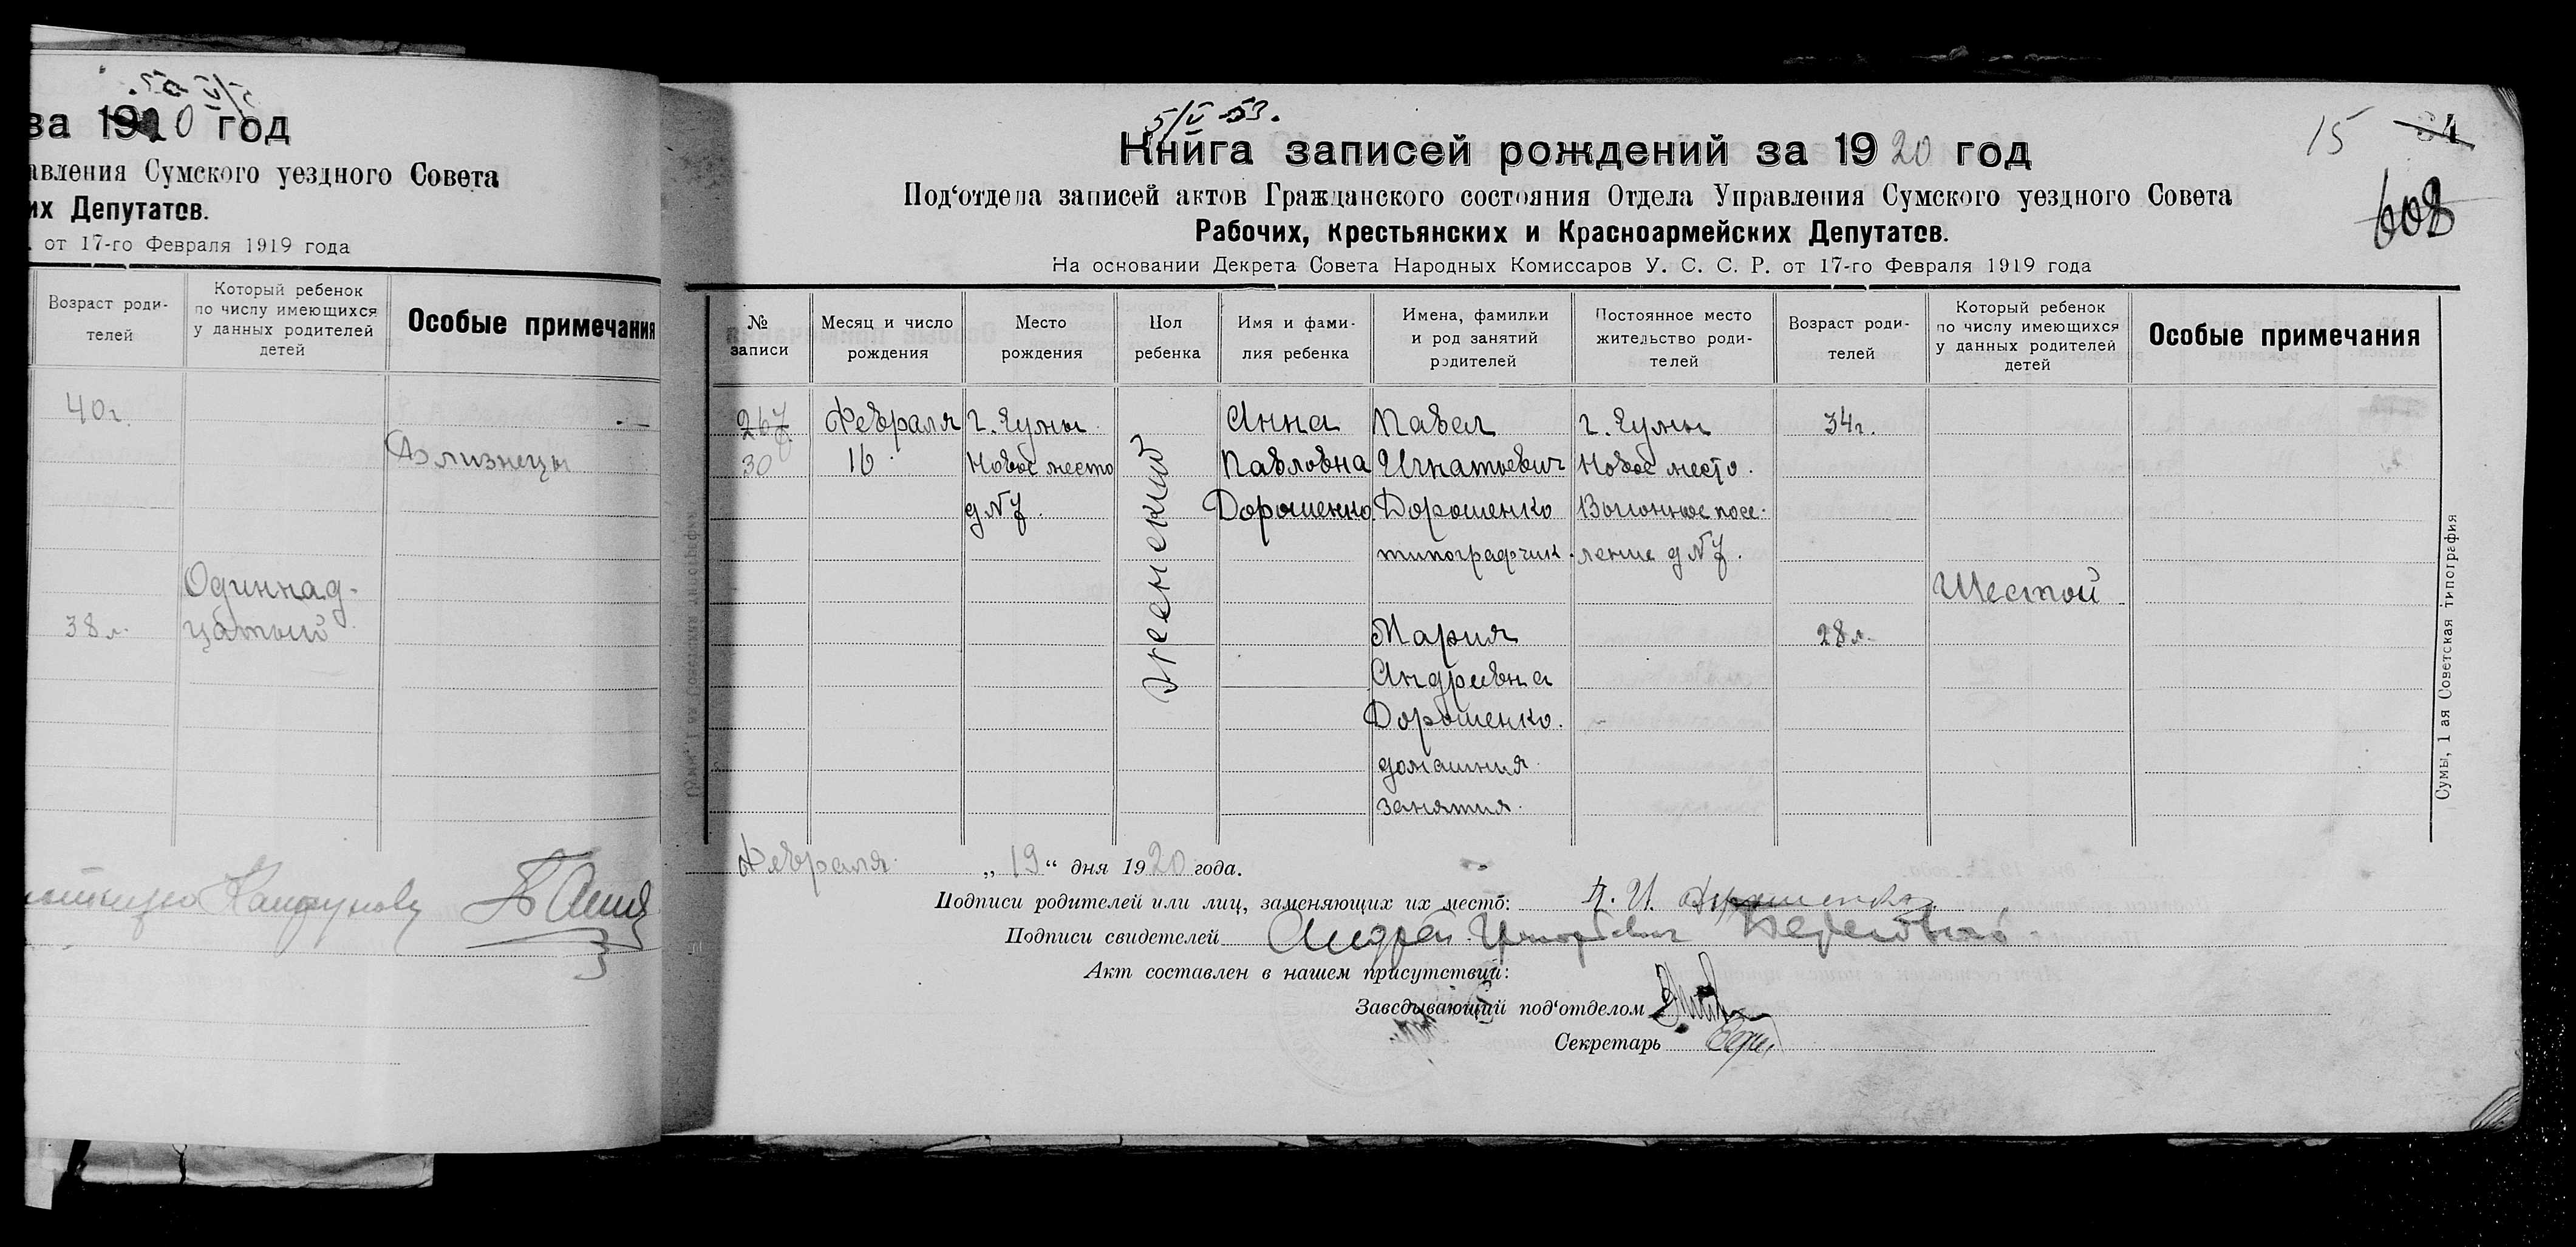 за 1920 год
авления Сумского уездного Совета
их Депутатов.
. от 17-го Февраля 1919 года
Возраст роди-
телей
Который ребенок
по числу имеющихся
у данных родителей
детей
Особые примечания
40 г.
Близнецы
Одиннад-
цатый
38 л.
5/V 53.
15
608
Книга записей рождений за 1920 год
Под‘отдела записей актов Гражданского состояния Отдела Управления Сумского уездного Совета
Рабочих, Крестьянских и Красноармейских Депутатов.
На основании Декрета Совета Народных Комиссаров У. С. С. Р. от 17-го Февраля 1919 года
№
записи
Месяц и число
рождения
Место
рождения
Пол
ребенка
Имя и фами-
лия ребенка
Имена, фамилии
и род занятий
родителей
Постоянное место
жительство роди-
телей
Возраст роди-
телей
Который ребенок
по числу имеющихся
у данных родителей
детей
Особые примечания
267
30
Февраля
16
г. Сумы
Новое место
д № 7.
женский
Анна
Павловна
Дорошенко
Павел
Игнатьевич
Дорошенко
типографчик.
Мария
Андреевна
Дорошенко.
домашния
занятия.
г. Сумы
Новое место.
Выгонное посе-
ление д № 7.
34 г.
28 л.
Шестой
Февраля „19“ дня 1920 года.
Подписи родителей или лиц, заменяющих их место: П. И. Дорошенко
Подписи свидетелей Андрей
Акт составлен в нашем присутствии:
Заведывающий под‘отделом
Секретарь
Сумы, 1 ая Советская типография